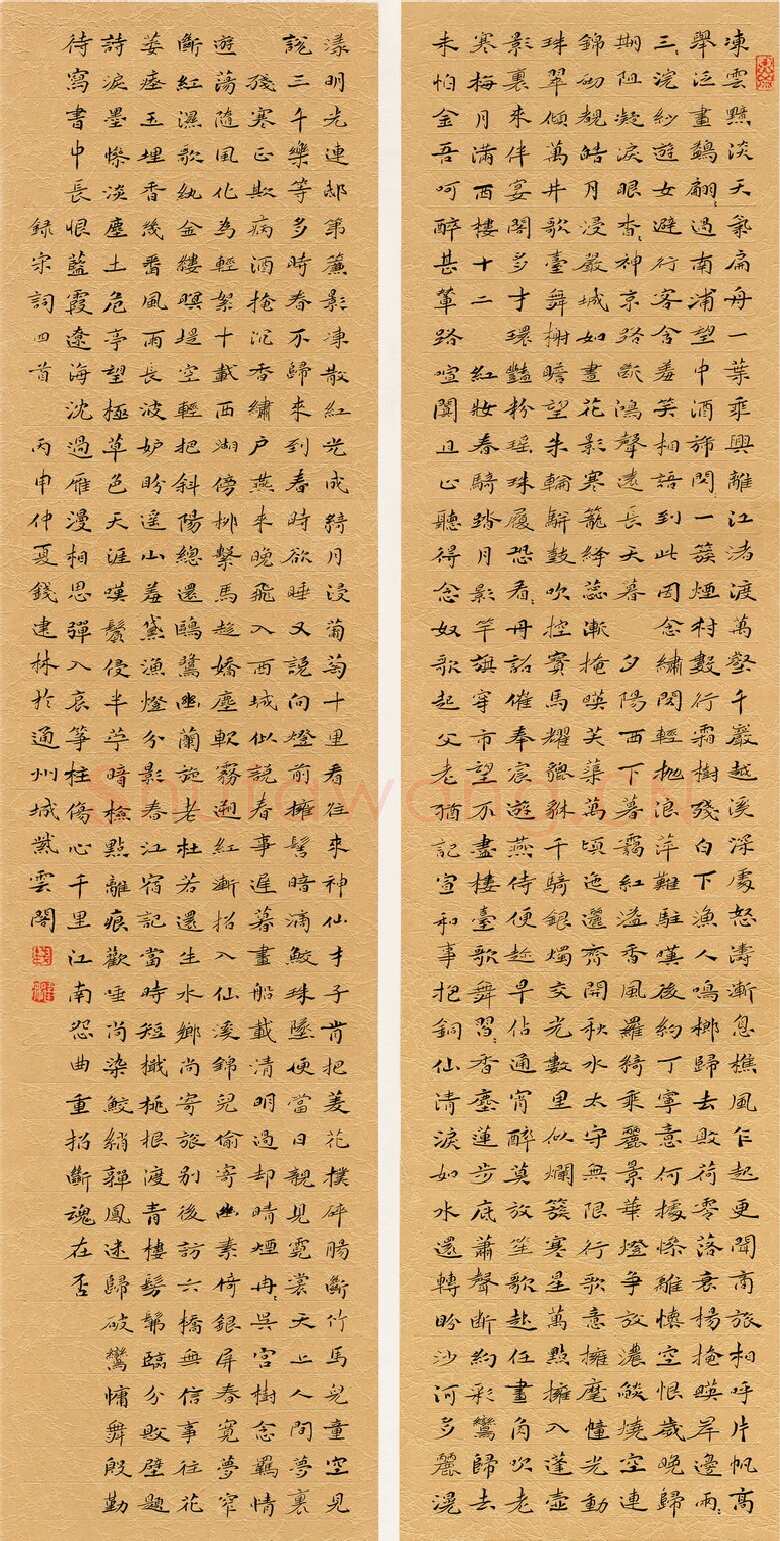 凍雲黯淡天氣扁舟一葉乘興離江渚渡萬壑千巖越溪深處怒濤漸息樵風乍起更聞商旅相呼片帆高
舉泛畫鷁翩:過南浦望中酒旆閃:一簇煙村數行霜樹殘日下漁人鳴榔歸去敗荷零落衰楊掩映岸邊兩:
三:浣紗遊女避行客含羞笑相語到此因念繡閣輕拋浪萍難駐嘆後約丁寧竟何據慘離懷空恨歲晚歸
期阻凝淚眼杳:神京路斷鴻聲遠長天暮 夕陽西下暮靄紅溢香風羅綺乘麗景華燈爭放濃燄燒空連
錦砌覩皓月浸嚴城如晝花影寒籠絳蕊漸掩映芙蕖萬頃迤邐齊開秋水太守無限行歌意擁麾幢光動
珠翠傾萬井歌臺舞榭瞻望朱輪駢鼓吹控寶馬耀貔貅千騎銀燭交光數里似爛簇寒星萬點擁入蓬壺
影裏來伴宴閣多才 環豔粉瑤珠履恐看:丹詔催奉宸遊燕侍便趁早佔通宵醉莫放笙歌起任畫角吹老
寒梅月滿西樓十二 紅妝春騎踏月影竿旗穿市望不盡樓臺歌舞習:香塵蓮步底簫聲斷約彩鸞歸去
未怕金吾呵醉甚輦路喧闐且止聽得念奴歌起父老猶記宣和事把銅仙清淚如水還轉盼沙河多麗滉
漾明光連邸第簾影凍散紅光成綺月浸葡萄十里看往來神仙才子肯把菱花撲碎腸斷竹馬兒童空見
說三千樂等多時春不歸來到春時欲睡又說向燈前擁髻暗滴鮫珠墜便當日親見霓裳天上人間夢裏
殘寒正欺病酒掩沉香繡戶燕來晚飛入西城似說春事遲暮畫船載清明過却晴煙冉:吳宮樹念羈情
遊蕩隨風化為輕絮十載西湖傍柳繫馬趁嬌塵軟霧遡紅漸招入仙溪錦兒偷寄幽素倚銀屏春寬夢窄
斷紅濕歌紈金縷暝堤空輕把斜陽總還鷗鷺幽蘭旋老杜若還生水鄉尚寄旅別後訪六橋無信事往花
萎瘞玉埋香幾番風雨長波妒盼遙山羞黛漁燈分影春江宿記當時短楫桃根渡青樓髣髴臨分敗壁題
詩淚墨慘淡塵土危亭望極草色天涯嘆鬢侵半苧暗檢點離痕歡唾尚染鮫綃嚲鳳迷歸破鸞慵舞殷勤
待寫書中長恨藍霞遼海沈過雁漫相思彈入哀箏柱傷心千里江南怨曲重招斷魂在否
錄宋詞四首 丙申仲夏錢建林於通州城紫雲閣